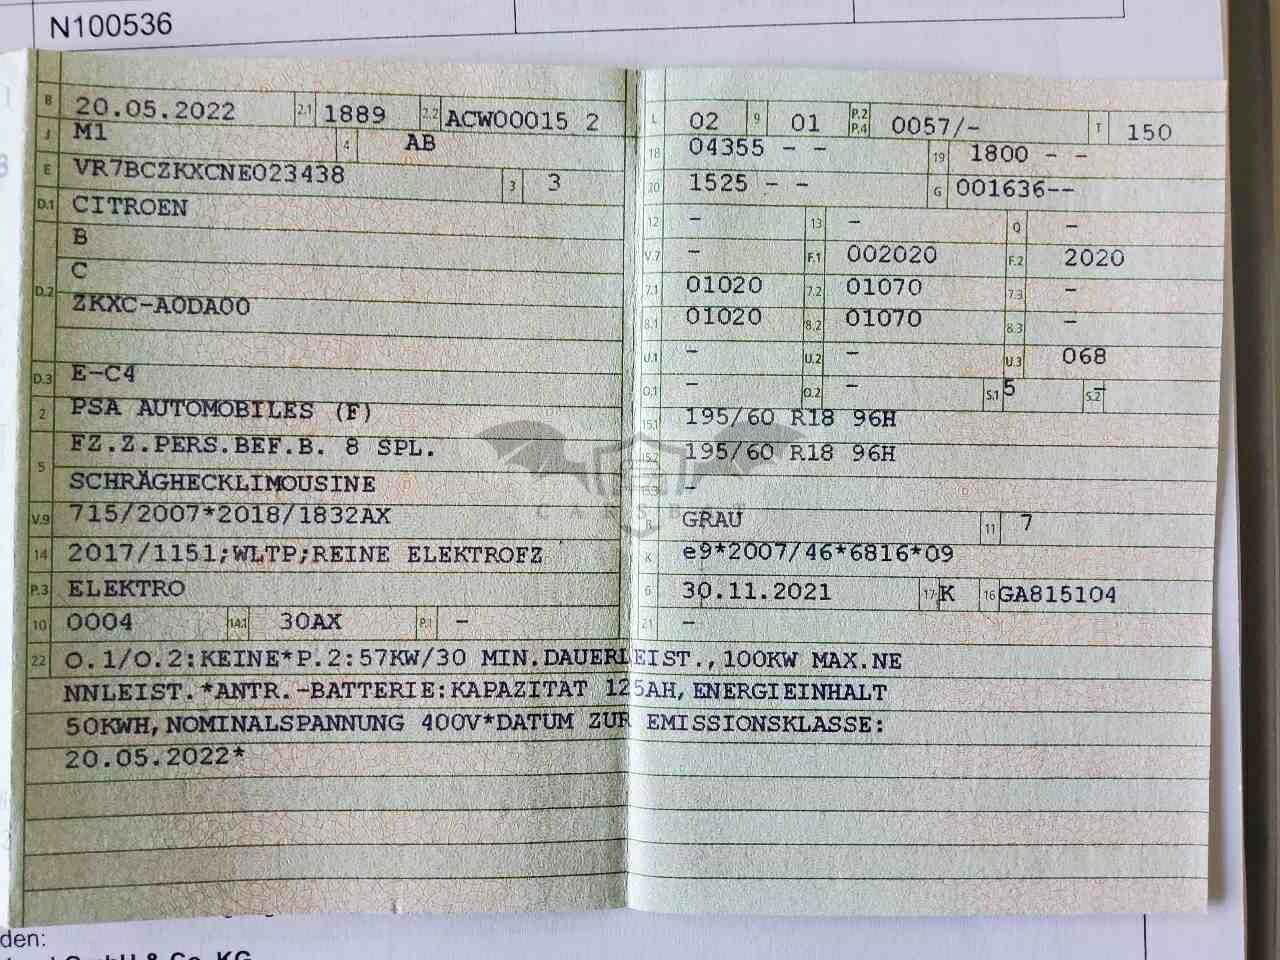 N100536
B 20.05.2022 2.1 1889 2.2 ACW00015 2
J M1 4 AB
E VR7BCZKXCNE023438 3 3
D.1 CITROEN
B
C
D.2 ZKXC-A0DA00
D.3 E-C4
2 PSA AUTOMOBILES (F)
FZ.Z.PERS.BEF.B. 8 SPL.
5
SCHRÄGHECKLIMOUSINE
V.9 715/2007*2018/1832AX
14 2017/1151;WLTP;REINE ELEKTROFZ
P.3 ELEKTRO
10 0004 14.1 30AX P.1 -
L 02 9 01 P.2 P.4 0057/- T 150
18 04355 - - 19 1800 - -
20 1525 - - G 001636--
12 - 13 - Q -
V.7 - F.1 002020 F.2 2020
7.1 01020 7.2 01070 7.3 -
8.1 01020 8.2 01070 8.3 -
U.1 - U.2 - U.3 068
O.1 - O.2 - S.1 5 S.2 -
15.1 195/60 R18 96H
15.2 195/60 R18 96H
15.3 -
R GRAU 11 7
K e9*2007/46*6816*09
6 30.11.2021 17 K 16 GA815104
21 -
22 O.1/O.2:KEINE*P.2:57KW/30 MIN.DAUERLEIST.,100KW MAX.NE
NNLEIST.*ANTR.-BATTERIE:KAPAZITAT 125AH,ENERGIEINHALT
50KWH,NOMINALSPANNUNG 400V*DATUM ZUR EMISSIONSKLASSE:
20.05.2022*
den:
GmbH & Co. KG